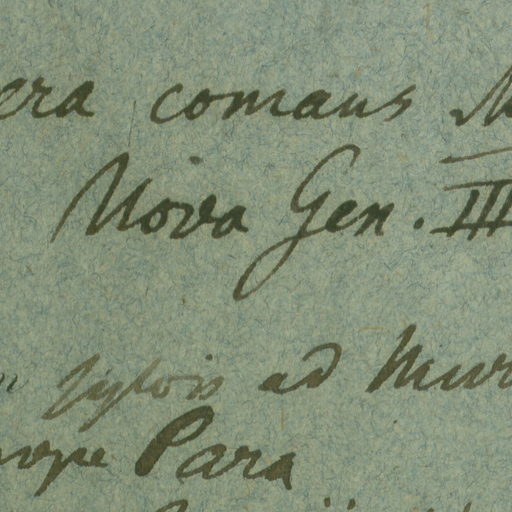 era comans M
Nova Gen. III
sylvis ad Mur
prope Para